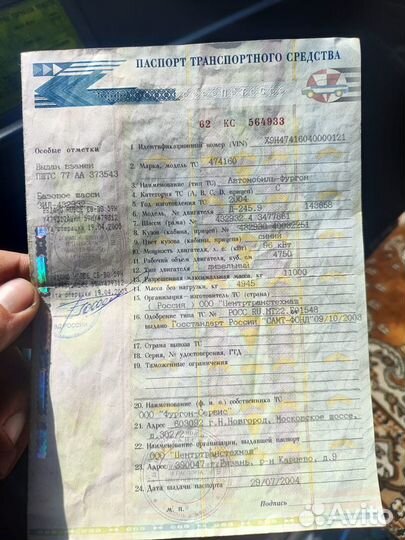 ПАСПОРТ ТРАНСПОРТНОГО СРЕДСТВА
62 КС 564933
Особые отметки
Выдан взамен
ПШТС 77 АА 373543
Базовое шасси
1. Идентификационный номер (VIN) X9H47416040000121
2. Марка, модель ТС 474160
3. Наименование (тип ТС) Автомобиль-фургон
4. Категория ТС (А, В, С, D, прицеп) С
5. Год изготовления ТС 2004
6. Модель, № двигателя 143658
7. Шасси (рама) № 432932.4 3477861
8. Кузов (кабина, прицеп) № 432930 40032251
9. Цвет кузова (кабины, прицепа) синий
10. Мощность двигателя, л. с. (кВт) 96 кВт
11. Рабочий объем двигателя, куб. см 4750
12. Тип двигателя дизельный
14. Разрешенная максимальная масса, кг 11000
15. Масса без нагрузки, кг 4945
15. Организация-изготовитель ТС (страна)
Россия, ООО "Центртранстехмаш"
16. Одобрение типа ТС № РОСС RU.МТ22.Е01548
выдано Госстандарт России "САМТ-ФОНД" 09/10/2003
17. Страна вывоза ТС
18. Серия, № удостоверения, ГТД
19. Таможенные ограничения
20. Наименование (ф. и. о.) собственника ТС
ООО "Фургон-Сервис"
21. Адрес 603092 г.Н.Новгород, Московское шоссе,
д.302
22. Наименование организации, выдавшей паспорт
ООО "Центртранстехмаш"
23. Адрес 390047 г.Рязань, р-н Карцево, д.9
24. Дата выдачи паспорта 29/07/2004
М. П. Подпись
Avito